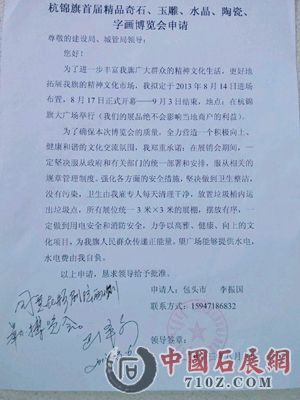 杭锦旗首届精品奇石、玉雕、水晶、陶瓷、
字画博览会申请
尊敬的建设局、城管局领导：
您好！
为了进一步丰富我旗广大群众的精神文化生活，更好地
拓展我旗的精神文化市场，我拟定于 2013 年 8 月 14 日进场
布置，8 月 17 日正式开幕——9 月 3 日结束，地点：在杭锦
旗大广场举行（我们的展品绝不会影响当地商户的利益）
为了确保本次博览会的质量，全力营造一个积极向上、
健康和谐的文化交流氛围，我郑重承诺：在展销会期间，一
定坚决服从政府和有关部门的统一部署和安排，服从相关的
规章管理制度。强化各方面的安全措施，坚决做到卫生整洁，
没有污染，卫生由我雇专人每天清理干净，放置垃圾桶内运
出垃圾点，所有展位统一 3 米×3 米的展棚，摆放有序，一
定做到用电安全和消防安全，力争以高雅、健康、向上的文
化项目，为我旗人民群众传递正能量。望广场能够提供水电，
水电费由我自负。
以上申请，恳求领导给予批准。
申请人：包头市 李振国
联系方式：15947186832
领导签章：
同意在影剧院西侧
博览会。
中国石展网
710Z.com